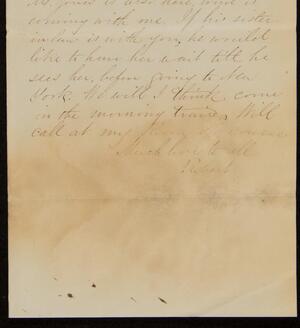 Mr. Jones is also here, and is
coming with me. If his sister
in law is with you, he would
like to have her wait till he
sees her, before going to New
York. We will I think come
in the morning train. Will
call at my
Much love to all
Robert